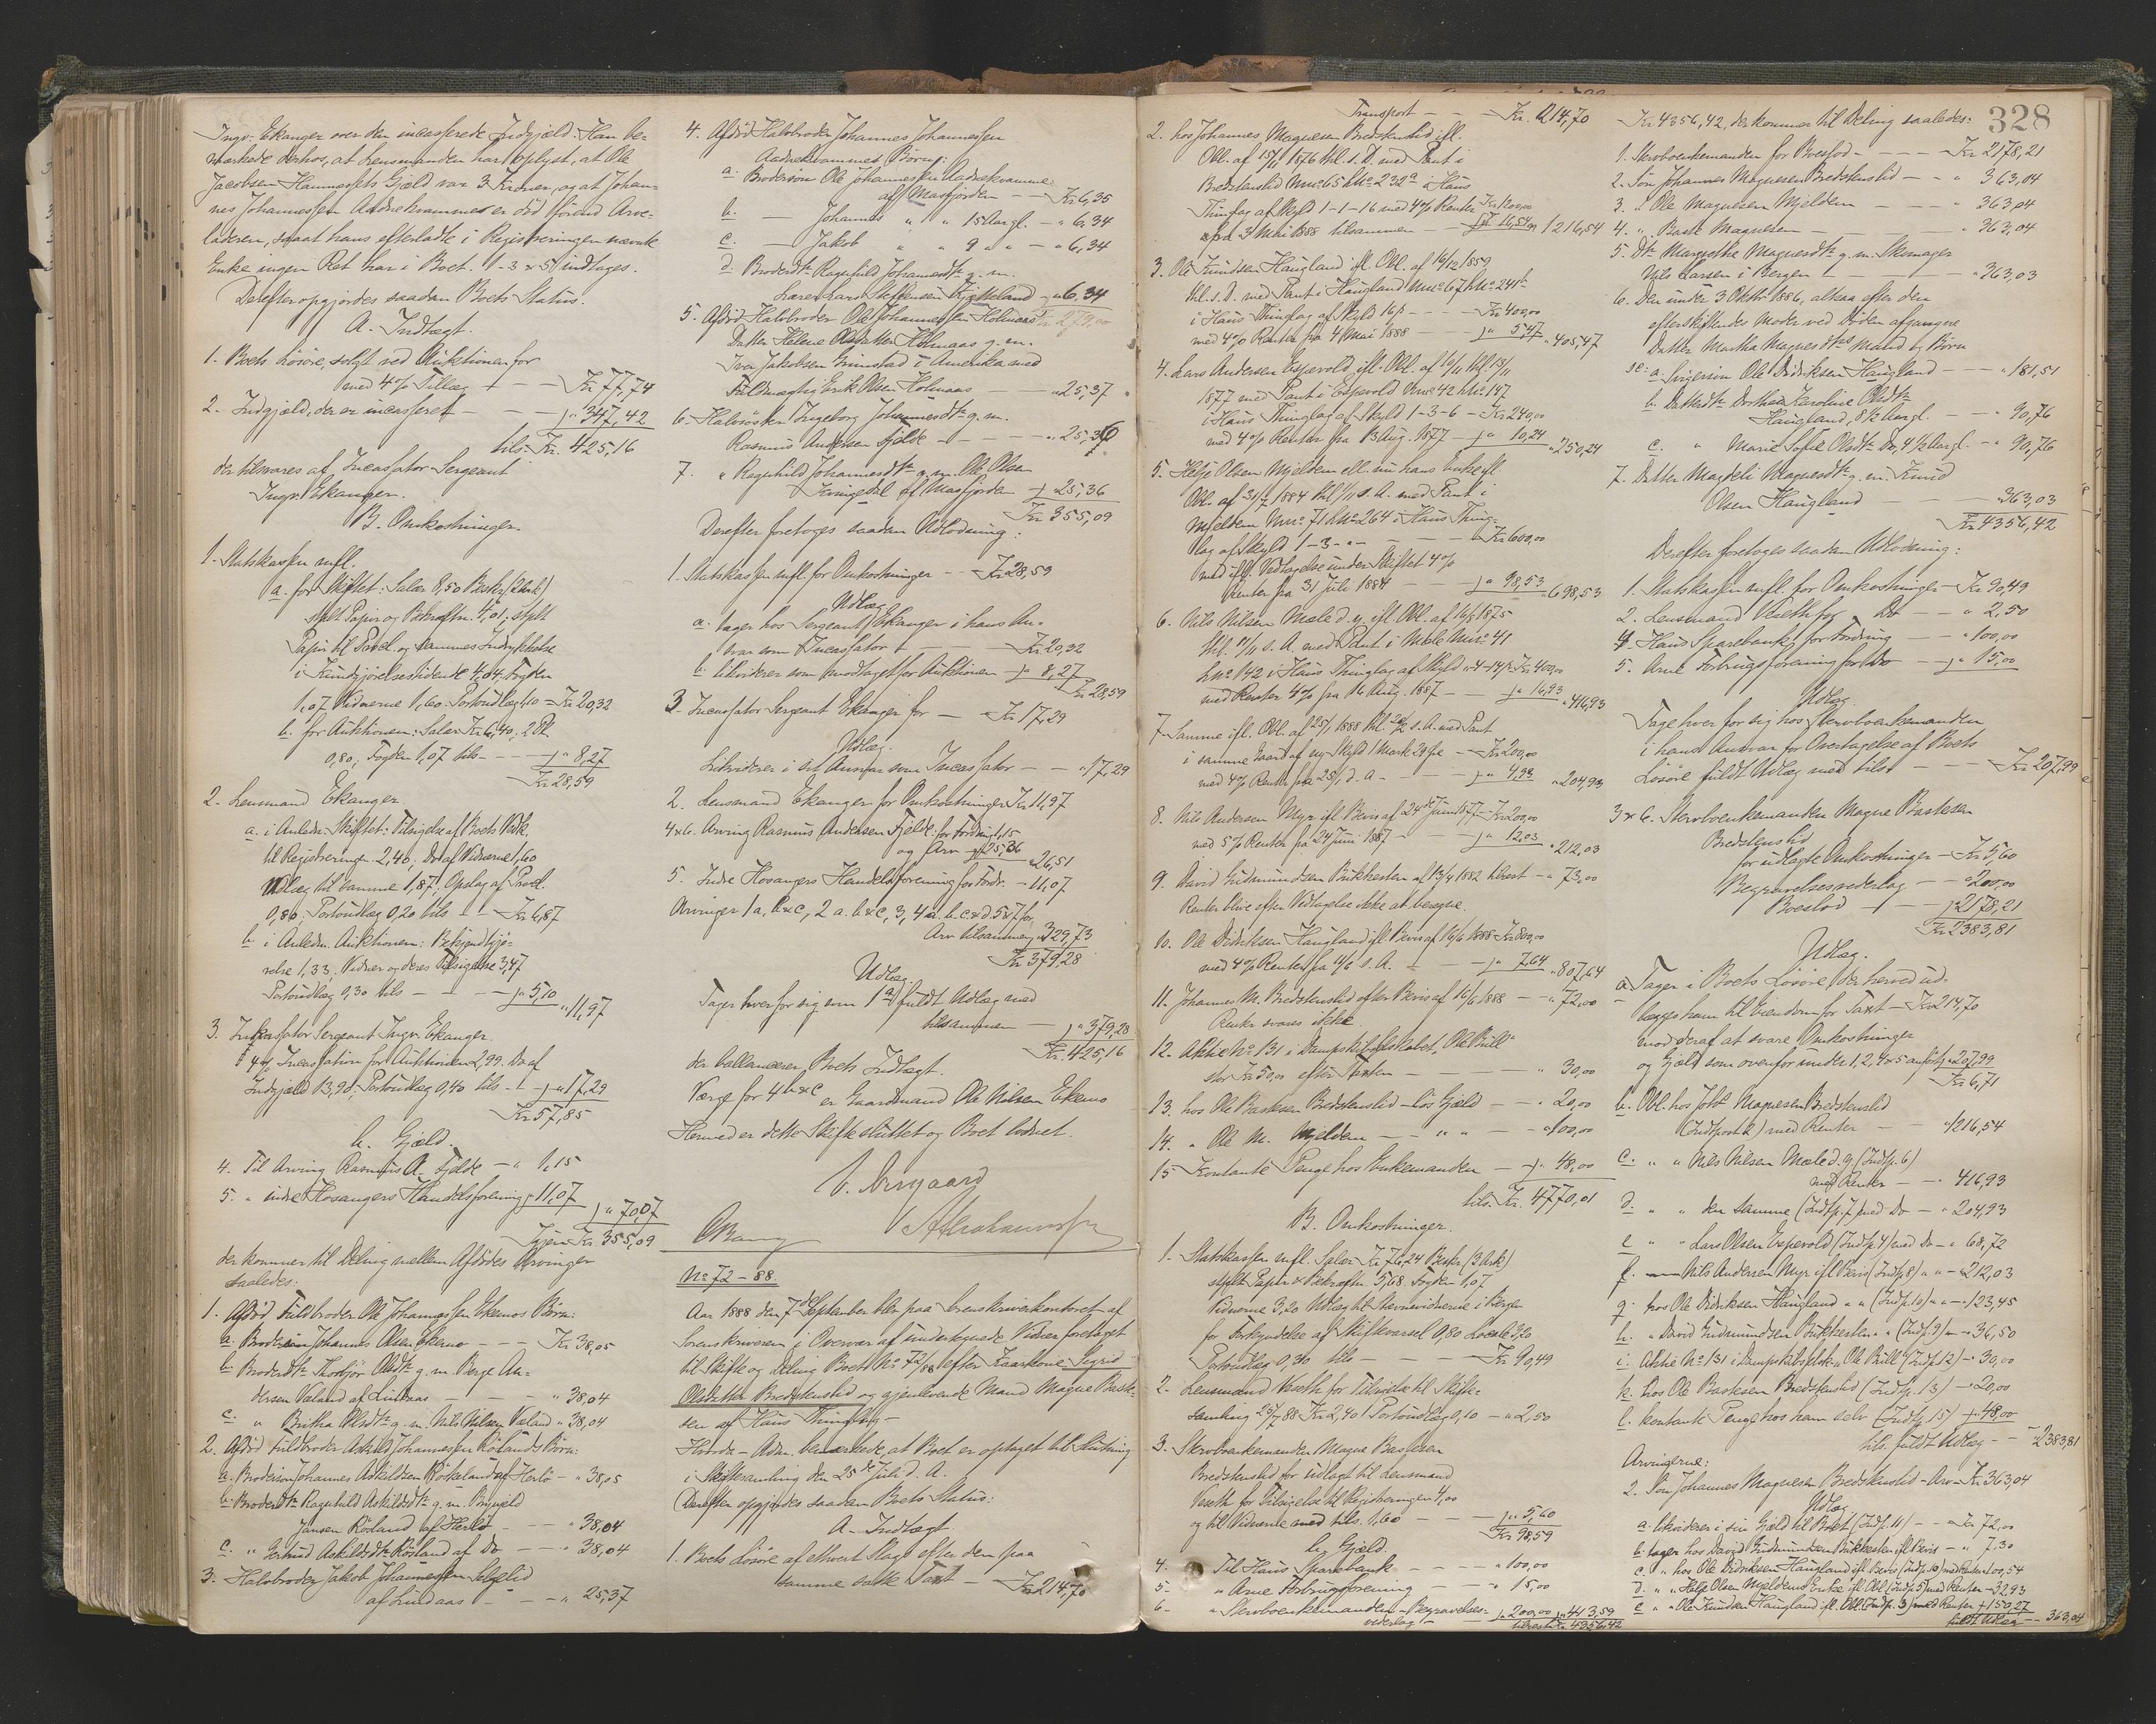 Ingv. Ekanger over den incasserede Indgjæld. Han be-
mærkede derhos, at Lensmanden har oplyst, at Ole
Jacobsen Hannessets Gjæld var 3 Kroner, og at Johan-
nes Johannessen Aadnekvammes er död förend Arve-
laderen, saaat hans efterladte i Registreringen nævnte
Enke ingen Ret har i Boet. 1-3 x 5 indtages.
Derefter opgjordes saadan Boets Status.
A. Indtægt.
1. Boets Lösöre, solgt ved Auktionen for
med 4% Tillæg - - Kr 77,74
2. Indgjæld, der er incasseret - - - „ 347,42
tils. Kr. 425,16
der tilsvares af Incassator Sergeant
Ingv. Ekanger.
B. Omkostninger
1. Statskassen mfl.
a. for Skiftet: Salær 8,50 Beskr. (2 Ark)
stplt Papir og Bekræftn. 4,01; stplt
Papir til Procl. og sammes Indrykkelse
i Kundgjörelsestidende 4,04. Fogden
1,07 Vidnerne 1,60 Portoudlæg 1,10 = Kr 20,32
b. for Auktionen: Salær Kr 6,40, 2 Pt.
0,80; Fogden 1,07 tils - - „ 8,27
Kr 28,59
2. Lensmand Ekanger
a. i Anledn. Skiftet: Tilsigelse af Boets Vedk.
til Registreringen 2,40; Do af Vidnerne 1,60
Udlæg til samme 1,87; Opslag af Procl.
0,80; Portoudlæg 0,20 tils - - Kr 6,87
b. i Anledn. Auktionen: Bekjendtgjö-
relse 1,33; Vidner og deres Tilsigelse 3,47
Portoudlæg 0,30 tils - - - „ 5,10 „ 11,97
3. Inkassator Sergeant Ingv. Ekanger
4% Incassation for Auktionen 2,99. Do af
Indgjæld 13,90; Portoudlæg 0,40 tils - „ 17,29
Kr 57,85
b. Gjæld.
4. Til Arving Rasmus A. Fjelde - „ 1,15
5. „ indre Hosangers Handelsforening „ 11,07
„ 70,07
Igjen Kr. 355,09
der kommer til Deling mellem Afdödes Arvinger
saaledes:
1. Afdöd Fuldbroder Ole Johannessen Ekemos Börn:
a. Brodersön Johannes Olsen Ekemo - - Kr 38,05
b. Broderdtr. Thorbjör Olsdtr. g. m. Berge An-
dersen Væland af Lindaas - - - „ 38,04
c. „ Britha Olsdtr. g. m. Nils Nilsen Væland „ 38,04
2. Afdöd Fuldbroder Askild Johannessen Röslands Börn:
a. Brodersön Johannes Askildsen Röskeland af Herlö - „ 38,05
b. Broderdtr. Ragnhild Askildsdtr. g. m. Brynjeld
Jansen Rösland af Herlö - - - „ 38,04
c. „ Gertrud Askildsdtr. Rösland af Do - - „ 38,04
3. Halvbroder Jakob Johannessen
af Lindaas - - - „ 25,37
4. Afdöd Halvbroder Johannes Johannessen
Aadnekvammes Börn:
a. Brodersön Ole Johannessen Aadnekvamme
af Masfjorden - - Kr 6,35
b. - Johannes „ „ 15 Aargl. - „ 6,34
c. - Jakob „ „ 9 „ „ - „ 6,34
d. Broderdtr. Ragnhild Johannesdtr. g. m.
Lærer Lars Steffensen Kjetteland - „ 6,34
5. Afdöd Halvbroder Ole Johannessen Holmaas Kr 279,00
Datter Helene Olsdatter Holmaas g. m.
Iver Jakobsen Grimstad i Amerika med
Fuldmægtig Erik Olsen Holmaas - - „ 25,37
6. Halvsöster Ingeborg Johannesdtr. g. m.
Rasmus Andersen Fjelde - - - - „ 25,36
7. „ Ragnhild Johannesdtr. g. m. Ole Olsen
Kvingedal af Masfjorden „ 25,36
Kr 355,09
Derefter foretoges saadan Udlodning:
1. Statskassen mfl. for Omkostninger - - Kr 28,59
Udlæg
a. tager hos Sergeant Ekanger i hans An-
svar som Incassator - - Kr 20,32
b. likviderer som modtaget for Auktionen „ 8,27
Kr 28,59
3. Incassator Sergeant Ekanger for - - Kr 17,29
Udlæg.
Likviderer i sit Ansvar som Incassator - - „ 17,29
2. Lensmand Ekanger for Omkostninger Kr 11,97
4x6. Arving Rasmus Andersen Fjelde: for Fordring 1,15
og Arv „ 25,36 „ 26,51
5. Indre Hosangers Handelsforening for Fordr. - 11,07
Arvinger 1 a, b x c, 2 a. b x c, 3, 4 a. b. c x d. 5 x 7 for
Arv tilsammen „ 329,73
Kr 379,28
Udlæg
Tager hver for sig som 1 a) fuldt Udlæg med
tilsammen - „ 379,28
Kr. 425,16
der ballancerer Boets Indtægt.
Værge for 4 b x c er Gaardmand Ole Nilsen Ekemo
Hermed er dette Skifte sluttet og Boet lodnet.
No 72 - 88
Aar 1888 den 7de September blev paa Sorenskriverkontoret af
Sorenskriveren i Overvær af undertegnede Vidner foretaget
til Skifte og Deling Boet No 72/88 efter Faarkone Sigrid
Olsdatter Bredstenslid og gjenlevende Mand Magne Bast-
sen af Haus Thinglag -
Hvorda - Adm. bemærkede, at Boet er optaget til Slutning
i Skiftesamling den 25de Juli d. A.
Derefter opgjordes saadan Boets Status:
A. Indtægt.
1. Boets Lösöre af ethvert Slags efter den paa
samme satte Taxt - Kr 214,70
Transport - - Kr. 214,70
2. hos Johannes Magnesen Bredstenslid ifl.
Obl. af 15/11 1876 thl. s. D. med Pant i
Bredstenslid Mno 65 Lno 232a i Haus
Thinglag af Skyld 1-1-16 med 4% Renter Kr 1200,00
fra 3 Mai 1888 tilsammen - - „ 16,54 „ 1216,54
3. Ole Knudsen Haugland ifl. Obl. af 16/12 1859
thl. s. D. med Pant i Haugland Mno 67 Lno 241b
i Haus Thinglag af Skyld 16 β - - Kr 400,00
med 4% Renter fra 4 Mai 1888 - - „ 5,47 „ 405,47
4. Lars Andersen Espevold ifl. Obl. af 6/11 thl. 15/11
1877 med Pant i Espevold Mno 42 Lno 147
i Haus Thinglag af Skyld 1-3-6 - Kr 240,00
med 4% Renter fra 13 Aug. 1877 - „ 10,24 „ 250,24
5. Helje Olsen Mjeldem ell. nu hans Enke ifl.
Obl. af 31/7 1884 thl. 1/11 s. A. med Pant i
Mjeldem Mno 71 Lno 264 i Haus Thing-
lag af Skyld 1-3-„ - - - Kr 600,00
med ifl. Vedtagelse under Skiftet 4%
Renter fra 31 Juli 1884 - - - „ 98,53 „ 698,53
6. Nils Nilsen Mæle d. y. ifl. Obl. af 16/8 1875
thl. 17/11 s. A. med Pant i Mæle Mno 41
Lno 142 i Haus Thinglag af Skyld „-4-14 β Kr 400,00
med Renter 4% fra 16 Aug. 1887 - - „ 16,93 „ 416,93
7. Samme ifl. Obl. af 25/1 1888 thl. s. A. med Pant
i samme Gaard af ny Skyld 1 Mark 29 Öre - Kr 200,00
med 4% Renter fra 25/1 d. A. - - - „ 4,93 „ 204,93
8. Nils Andersen Myr ifl Bevis af 24de Juni 1877 - Kr 200,00
med 5% Renter fra 24 Juni 1887 - - „ 12,03 „ 212,03
9. David Gudmundsen Bukkesten af 13/4 1882 - „ 73,00
Renter blive efter Vedtagelse ikke at beregne.
10. Ole Didriksen Haugland ifl Bevis af 16/6 1888 Kr 800,00
med 4% Renter fra 11/6 s. A. - - „ 7,64 „ 807,64
11. Johannes M. Bredstenslid efter Bevis af 16/6 1888 - - „ 72,00
Renter svares ikke
12. Aktie No 131 i Dampskibsselskabet „Ole Bull“
stor Kr 50,00 efter Taxten - - - - „ 30,00
13. hos Ole Bastesen Bredstenslid - lös Gjæld - - „ 20,00
14. „ Ole M. Mjeldem - - „ „ - - „ 100,00
15 Kontante Penge hos Enkemanden - „ 48,00
tils. Kr. 4770,01
B. Omkostninger.
1. Statskassen mfl. Salær Kr 76,24 Beskr. (3 Ark)
stplt Papir x Bekræftn. 5,68. Fogden 1,07
Vidnerne 3,20 Udlæg til Stævnevidnerne i Bergen
for Forkyndelse af Skiftevarsel 0,80 Locale 3,20
Portoudlæg 0,30 tils - - - Kr 90,49
2. Lensmand Veseth for Tilsigelse til Skifte-
samling 25/7 88 Kr 2,40 Portoudlæg 0,10 - „ 2,50
3. Skrvboenkemanden Magne Bastesen
Bredstenslid for udlagt til Lensmand
Veseth for Tilsigelse til Registreringen 4,00
og til Vidnerne med tils. 1,60 - - - „ 5,60
Kr 98,59
b. Gjæld.
4. Til Haus Sparebank - - - „ 100,00
5. „ Arne Forbrugsforening - - - „ 15,00
6. „ Skrvboenkemanden - Begravelses-
vederlag - „ 200,00 „ 413,59
tilrest Kr 4356,42
328
Kr 4356,42, der kommer til Deling saaledes:
1. Skrvboenkemanden for Boeslod - - - - Kr 2178,21
2. Sön Johannes Magnesen Bredstenslid - - „ 363,04
3. „ Ole Magnesen Mjeldem - - „ 363,04
4. „ Baste Magnesen - - - „ 363,04
5. Dtr. Margrethe Magnesdtr. g. m. Skomager
Nils Larsen i Bergen - - - „ 363,03
6. Den under 3 Oktbr 1886, altsaa efter den
efterskiftendes Moder ved Döden afgangne
Datter Martha Magnesdtrs Mand og Börn
sc: a. Svigersön Ole Didriksen Haugland - - - „ 181,51
b. Datterdtr. Dorthea Karoline Olsdtr.
Haugland, 8 1/2 Aargl. - - „ 90,76
c. „ Marie Sofie Olsdtr. Do, 4 1/2 Aargl. - „ 90,76
7. Datter Magdeli Magnesdtr. g. m. Knud
Olsen Haugland - - „ 363,03
Kr 4356,42
Derefter foretoges saadan Udlodning:
1. Statskassen mfl. for Omkostninger - Kr 90,49
2. Lensmand Veseth for Do - - „ 2,50
4. Haus Sparebank for Fordring - - „ 100,00
5. Arne Forbrugsforening for Do - „ 15,00
Udlæg.
Tage hver for sig hos Skrvboenkemanden
i hans Ansvar for Overtagelse af Boets
Lösöre fuldt Udlæg med tils. - - - Kr 207,99
3 x 6. Skrvboenkemanden Magne Bastesen
Bredstenslid
for udlagte Omkostninger - Kr 5,60
Begravelsesvederlag - - „ 200,00
Boeslod - - „ 2178,21
Kr 2383,81
Udlæg.
a. Tager i Boets Lösöre, der herved ud-
lægges ham til Eiendom for Taxt - Kr 214,70
mod deraf at svare Omkostninger
og Gjæld som ovenfor under 1, 2, 4 x 5 anfört „ 207,99
Kr 6,71
b. Obl. hos Johs Magnesen Bredstenslid
(Indtpost 2) med Renter - - „ 1216,54
c. „ „ Nils Nilsen Mæle d. y. (Indtp. 6)
med Renter - - „ 416,93
d. „ „ den samme (Indtp. 7) med Do - „ 204,93
e „ „ Lars Olsen Espevold (Indtp 4) med Do - „ 68,72
f. Nils Andersen Myr ifl Bevis (Indtp 8) „ „ - „ 212,03
g. hos Ole Didriksen Haugland „ „ (Indtp. 10) „ „ - „ 123,45
h. „ David Gudmundsen Bukkesten „ „ (Indtp. 9) „ - „ 36,50
i. Aktie No 131 i Dampskibsselsk. „Ole Bull“ (Indtp. 12) - „ 30,00
k. hos Ole Bastesen Bredstenslid (Indtp. 13) - „ 20,00
l. kontante Penge hos ham selv (Indtp 15) „ 48,00
tils. fuldt Udlæg - - „ 2383,81
Arvingerne:
2. Sön Johannes Magnesen Bredstenslid - Arv - Kr. 363,04
Udlæg
a. likviderer i sin Gjæld til Boet (Indtp. 11) - - Kr 72,00
b. tager hos David Gudmundsen Bukkesten ifl Bevis - „ 7,30
c. „ hos Ole Didriksen Haugland ifl Bevis (Indtp. 10) med Renter 100,54
d. „ „ Helje Olsen Mjeldems Enke ifl. Obl. (Indtp 5) med Renter - 32,93
e „ „ Ole Knudsen Haugland ifl. Obl. (Indtp. 3) med Renter „ 150,27
fuldt Udlæg - - 363,04